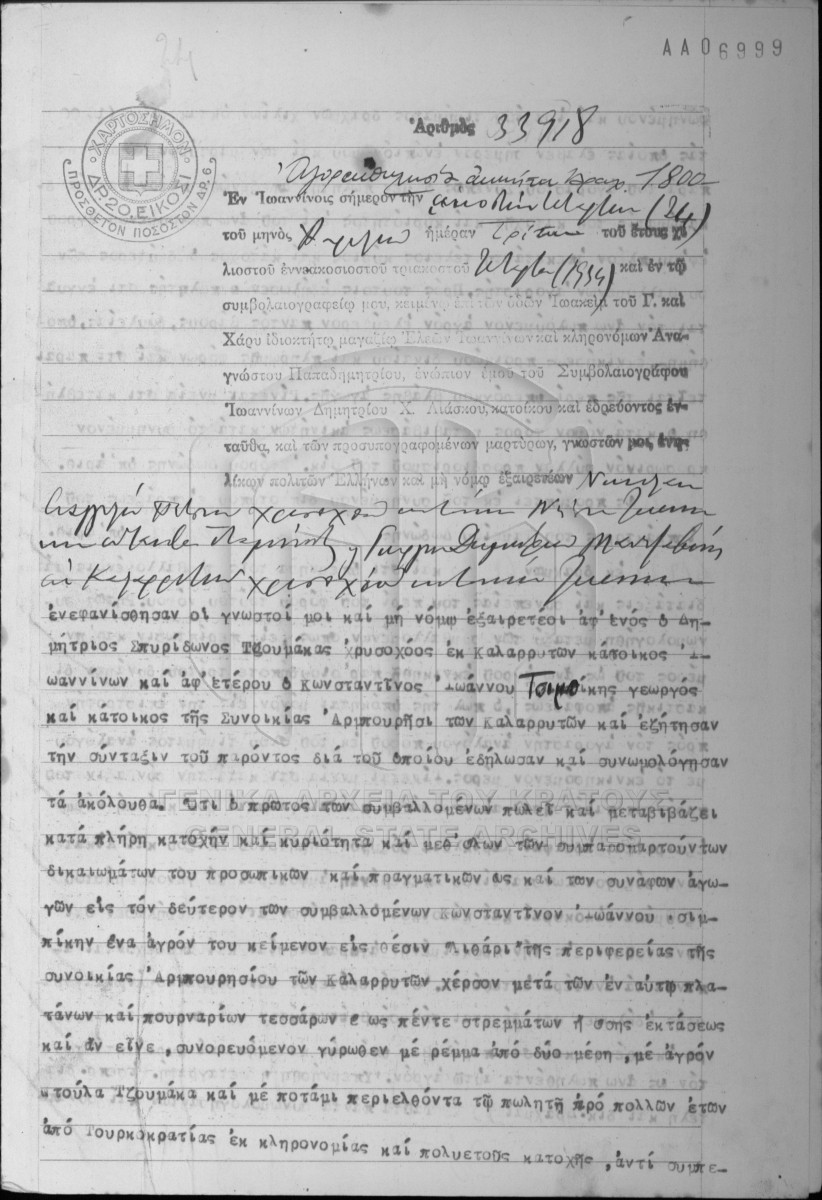 ΑΑ06999
ΧΑΡΤΟΣΗΜΟΝ
ΔΡ. 20. ΕΙΚΟΣΙ
ΠΡΟΣΘΕΤΟΝ ΠΟΣΟΣΤΟΝ ΔΡ. 6
Ἀριθμὸς 33918
Ἀγοραπωλησία ἀκινήτου δραχ. 1800
Ἐν Ἰωαννίνοις σήμερον τὴν εἰκοστὴν τετάρτην (24)
τοῦ μηνὸς ἡμέραν Τρίτην τοῦ ἔτους χι
λιοστοῦ ἐννεακοσιοστοῦ τριακοστοῦ τετάρτου (1934) καὶ ἐν τῷ
συμβολαιογραφείῳ μου, κειμένῳ ἐπὶ τῶν ὁδῶν Ἰωακεὶμ τοῦ Γ. καὶ
Χάρυ ἰδιοκτήτῳ μαγαζίῳ Ἐλεῶν Ἰωαννίνων καὶ κληρονόμων Ἀνα-
γνώστου Παπαδημητρίου, ἐνώπιον ἐμοῦ τοῦ Συμβολαιογράφου
Ἰωαννίνων Δημητρίου Χ. Λιάσκου, κατοίκου καὶ ἑδρεύοντος ἐν-
ταῦθα, καὶ τῶν προσυπογραφομένων μαρτύρων, γνωστῶν μοι, ἐνη-
λίκων πολιτῶν Ἑλλήνων καὶ μὴ νόμῳ ἐξαιρετέων
ἐνεφανίσθησαν οἱ γνωστοί μοι καί μή νόμῳ ἐξαιρετέοι ἀφ'ἑνός ὁ Δη-
μήτριος Σπυρίδωνος Τζουμάκας χρυσοχόος ἐκ Καλαρρυτῶν κάτοικος Ἰ-
ωαννίνων καί ἀφ'ἑτέρου ὁ Κωνσταντῖνος Ἰωάννου Τσιμπίκης γεωργός
καί κάτοικος τῆς Συνοικίας Ἀρμπουρῆσι τῶν Καλαρρυτῶν καί ἐζήτησαν
τήν σύνταξιν τοῦ παρόντος διά τοῦ ὁποίου ἐδήλωσαν καί συνωμολόγησαν
τά ἀκόλουθα. Ὅτι ὁ πρῶτος τῶν συμβαλλομένων πωλεῖ καί μεταβιβάζει
ΓΕΝΙΚΑ ΑΡΧΕΙΑ ΤΟΥ ΚΡΑΤΟΥΣ
GENERAL STATE ARCHIVES
κατά πλήρη κατοχήν καί κυριότητα καί μεθ'ὅλων τῶν συμπαρομαρτούντων
δικαιωμάτων του προσωπικῶν καί πραγματικῶν ὡς καί τῶν συναφῶν ἀγω-
γῶν εἰς τόν δεύτερον τῶν συμβαλλομένων Κωνσταντῖνον Ἰωάννου Τσιμ-
πίκην ἕνα ἀγρόν του κείμενον εἰς θέσιν Λιθάρι τῆς περιφερείας τῆς
συνοικίας Ἀρμπουρησίου τῶν Καλαρρυτῶν χέρσον μετά τῶν ἐν αὐτῷ πλα-
τάνων καί πουρναρίων τεσσάρων ἕως πέντε στρεμμάτων ἤ ὅσης ἐκτάσεως
καί ἄν εἶνε, συνορευόμενον γύρωθεν μέ ρέμμα ἀπό δύο μέρη, μέ ἀγρόν
τούλα Τζουμάκα καί μέ ποτάμι περιελθόντα τῷ πωλητῇ πρό πολλῶν ἐτῶν
ἀπό Τουρκοκρατίας ἐκ κληρονομίας καί πολυετοῦς κατοχῆς, ἀντί συμπε-